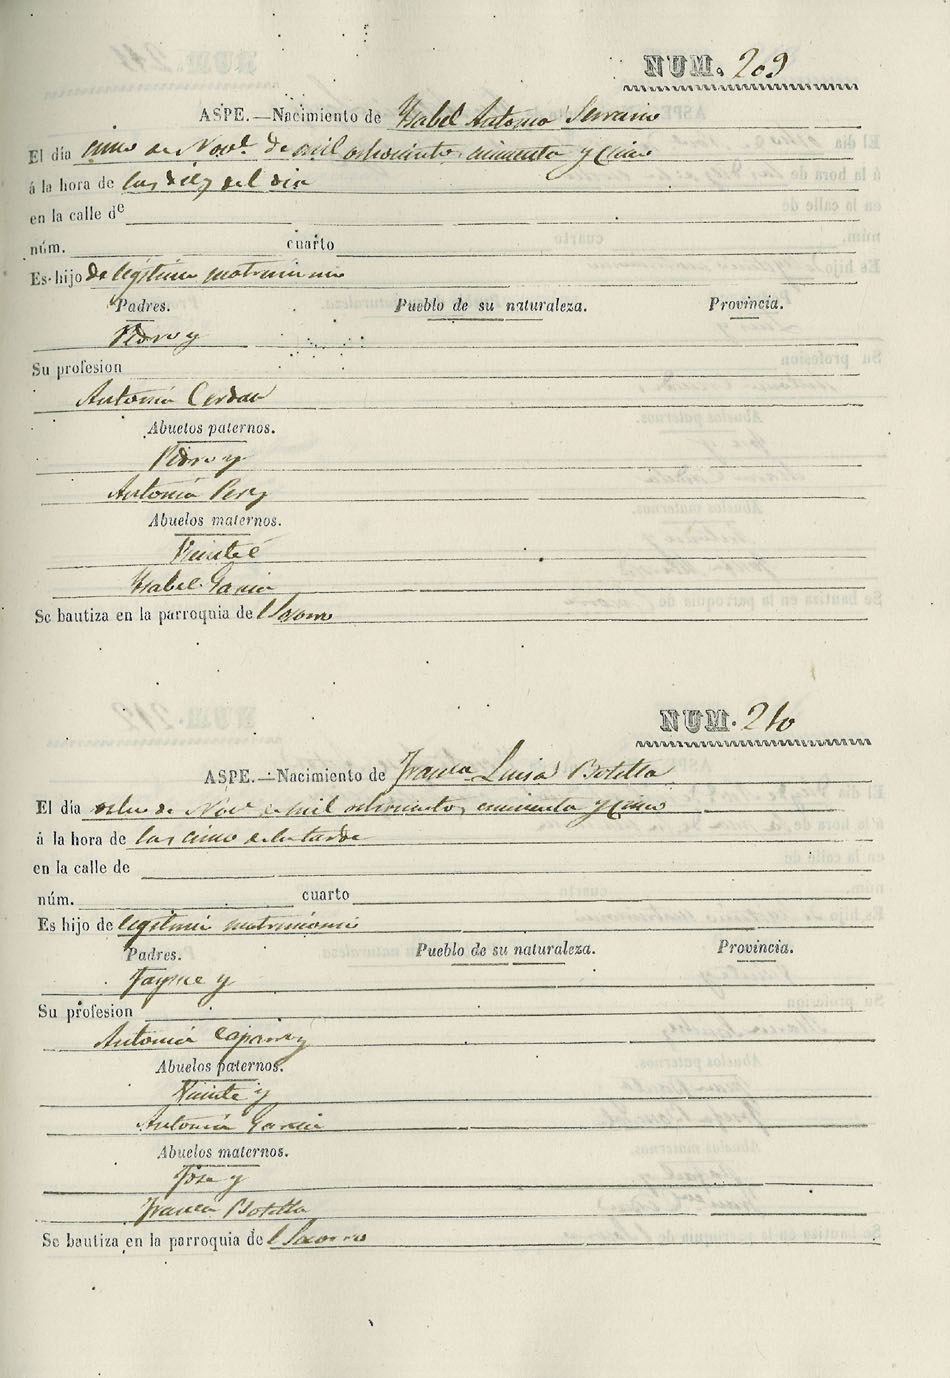 NUM. 209
ASPE.—Nacimiento de Ysabel Antonia Serrano
El día cinco de Nove. de mil ochocientos cincuenta y Cinco
á la hora de las diez del dia
en la calle de
núm. cuarto
Es hijo de legitimo matrimonio
Padres. Pueblo de su naturaleza. Provincia.
Pedro y
Su profesion
Antonia Cerdan
Abuelos paternos.
Pedro y
Antonia Perez
Abuelos maternos.
Vicente é
Ysabel Garcia
Se bautiza en la parroquia de l Socorro
NUM. 210
ASPE.—Nacimiento de Franca Luisa Botella
El día ocho de Nove de mil ochocientos, cincuenta y Cinco
á la hora de las cinco de la tarde
en la calle de
núm. cuarto
Es hijo de legitimo matrimonio
Padres. Pueblo de su naturaleza. Provincia.
Jayme y
Su profesion
Antonia
Abuelos paternos.
Vicente y
Antonia Garcia
Abuelos maternos.
Jose y
Franca Botella
Se bautiza en la parroquia de l Socorro